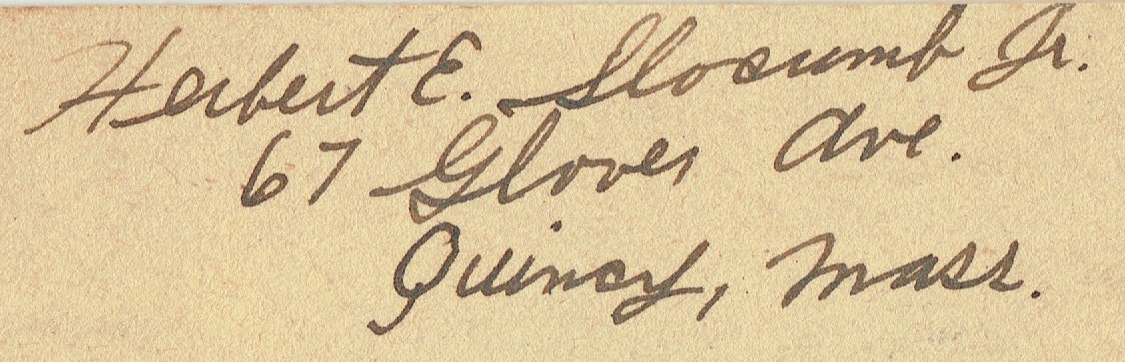 Herbert E. Slocumb Jr.
67 Glover Ave.
Quincy, Mass.